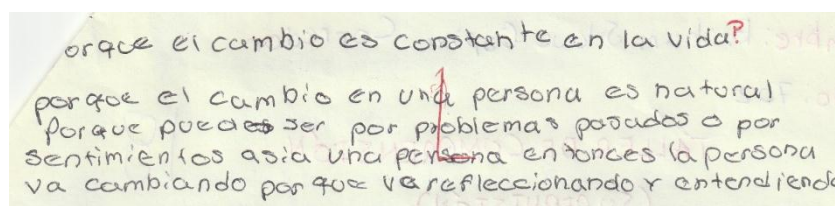 orque el cambio es constante en la vida?
porque el cambio en una persona es natural
Porque puedes ser por problemas pasados o por
sentimientos asia una persona entonces la persona
va cambiando por que va refleccionando y entendiendo